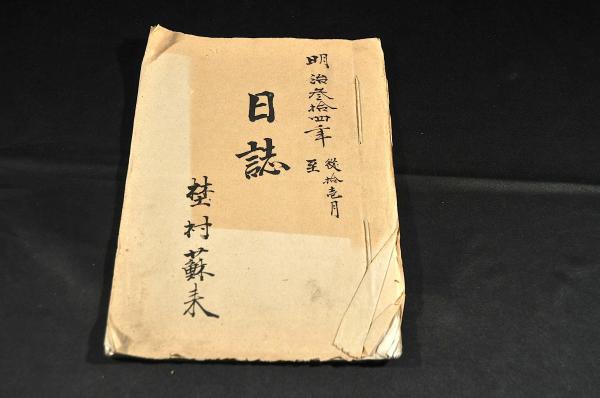 明治参拾四年
従拾壱月
至
日誌
埜村蘇来